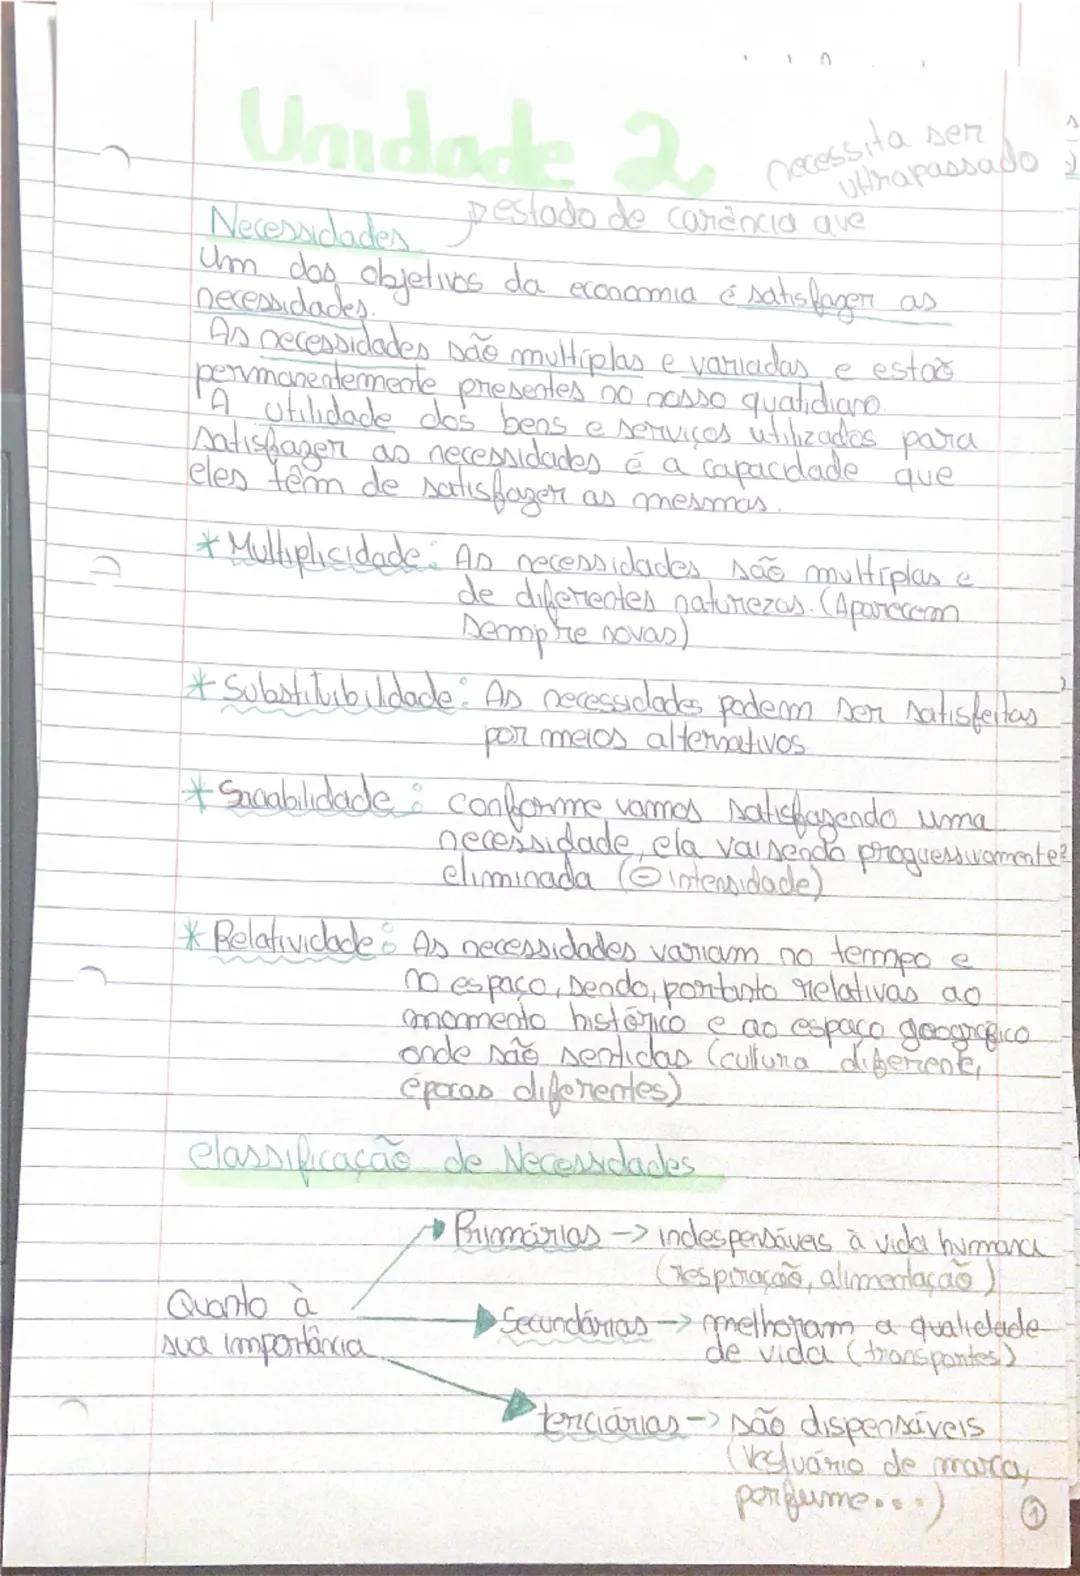 Unidade 2
Necessidades → estado de carência que
necessita ser
ultrapassado
Um dos objetivos da economia é satisfazer as
necessidades.
As necessidades são múltiplas e variadas e estão
permanentemente presentes no nosso quatidiano.
A utilidade dos bens e serviços utilizados para
satisfazer as necessidades é a capacidade que
eles têm de satisfazer as mesmas.
* Multiplicidade: As necessidades são multíplas e
de diferentes naturezas. (Aparecem
sempre novas)
* Substituibilidade: As necessidades podem ser satisfeitas
por meios alternativos
* Saciabilidade: conforme vamos satisfazendo uma
necessidade, ela vai sendo proguessivamente
eliminada (⊖ intensidade)
* Relatividade: As necessidades variam no tempo e
no espaço, sendo, portanto relativas ao
momento histórico e ao espaço geográfico
onde são sentidas (cultura diferente,
épocas diferentes)
Classificação de Necessidades
Quanto à
sua importância
Primárias -> indespensáveis à vida humana
(respiração, alimentação)
Secundárias -> melhoram a qualidade
de vida (transportes)
terciárias -> são dispensáveis
(vestuário de marca,
perfume...)
1